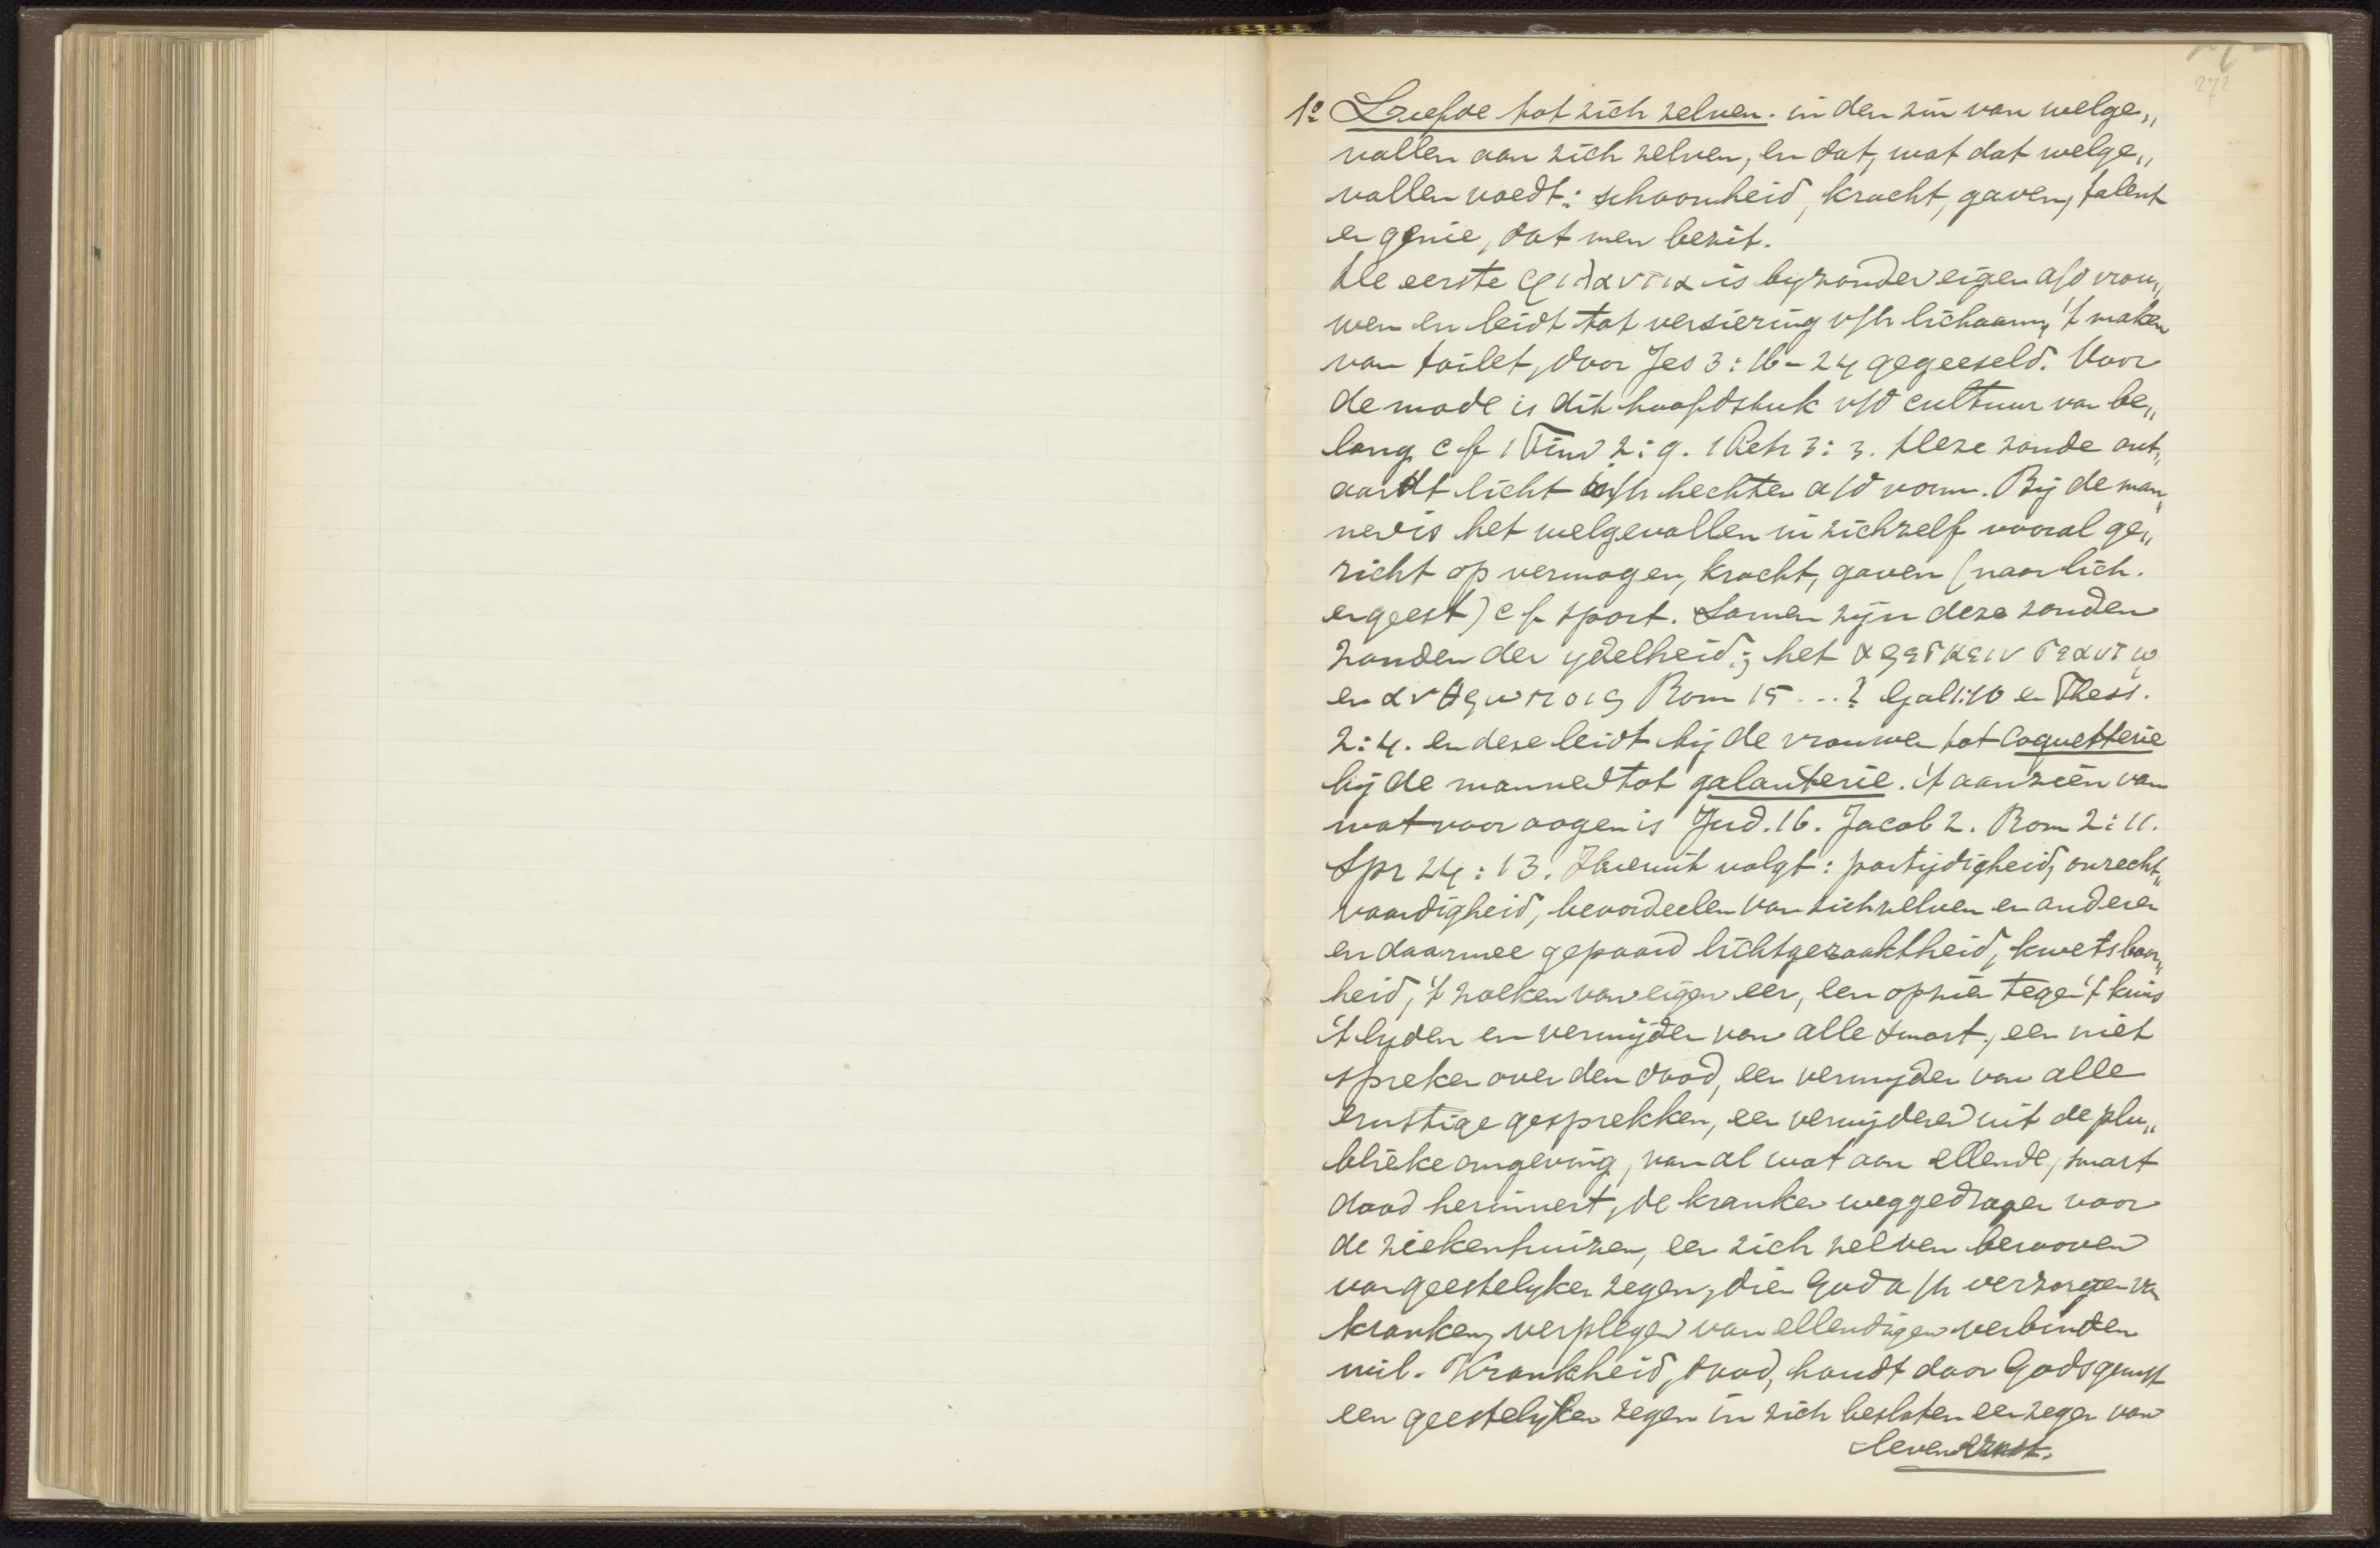 272
1º Liefde tot zich zelven. in den zin van welge„
vallen aan zich zelven, en dat, wat dat welge„
vallen voedt: schoonheid, kracht, gaven, talent
en genie, dat men bezit.
De eerste φιλαυτια is byzonder eigen a/d vrou„
wen en leidt tot versiering v/h lichaam, 't maken
van toilet, door Jes 3:16-24 gegeeseld. Voor
de mode is dit hoofdstuk v/d cultuur van be„
lang cf 1 Tim 2:9. 1 Petr 3:3. Deze zonde ont„
aardt licht in/h hechten a/d vorm. Bij de man„
nen is het welgevallen in zichzelf vooral ge„
richt op vermogen, kracht, gaven (naar lich.
en geest) cf sport. Samen zyn deze zonden
zonden der ydelheid; het αρεσκειν εαυτῳ
en ανθρωποις Rom 15 ...? Gal 1:10 en Thess.
2:4. en deze leidt bij de vrouwen tot coquetterie
bij de mannen tot galanterie. 't aanzien van
wat voor oogen is Jud. 16. Jacob 2. Rom 2:11.
Spr 24:13. Hieruit volgt: partijdigheid, onrecht„
vaardigheid, bevoordeelen van zichzelven en anderen
en daarmee gepaard lichtgeraaktheid, kwetsbaar„
heid, 't zoeken van eigen eer, een opzien tegen 't kruis
't lyden en vermijden van alle smart, een niet
spreken over den dood, een vermyden van alle
ernstige gesprekken, een verwijderen uit de plu„
blieke omgeving, van al wat aan ellende, smart
dood herinnert, de kranken weggedragen voor
de ziekenhuizen, een zich zelven berooven
van geestelyken zegen, dien God a/h verzorgen van
kranken, verplegen van ellendigen verbinden
wil. Krankheid, dood, houdt door Gods gunst
een geestelyken zegen in zich besloten een zegen van
levensernst.